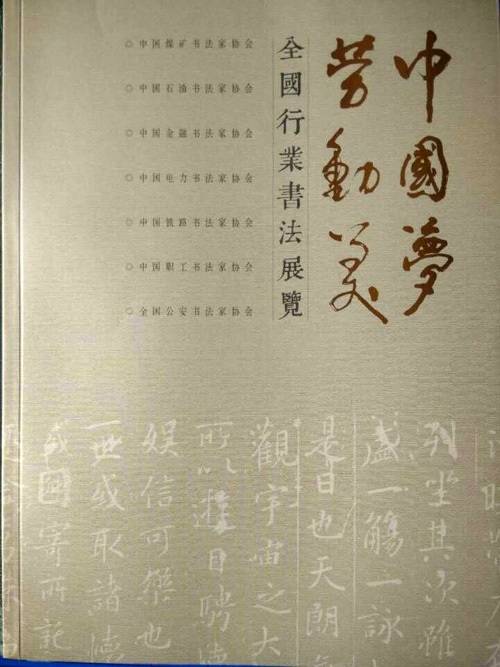 中國夢
劳動美
全國行業書法展覽
◎中国煤矿书法家协会
◎中国石油书法家协会
◎中国金融书法家协会
◎中国电力书法家协会
◎中国铁路书法家协会
◎中国职工书法家协会
◎全国公安书法家协会
列坐其次雖
盛一觴一詠
是日也天朗
觀宇宙之大
所以遊目騁懷
娱信可樂也
世或取諸懷
或因寄所託